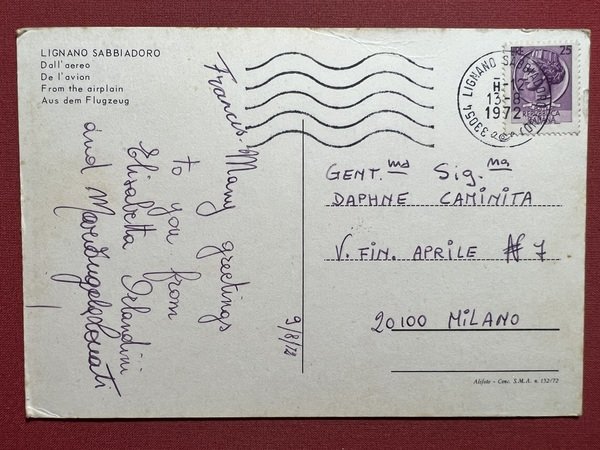 LIGNANO SABBIADORO
Dall'aereo
De l'avion
From the airplain
Aus dem Flugzeug
LIRE 25
REPUBBLICA ITALIANA
33054 LIGNANO SABBIADORO (UD)
H-12
13-8
1972
Francis. Many greetings
to you from
Elisabetta Orlandini
and Mariangela
9/8/72
GENT.ma Sig.na
DAPHNE CAMINITA
V. FIN. APRILE N 7
20100 MILANO
Alefoto - Conc. S.M.A. n. 152/72